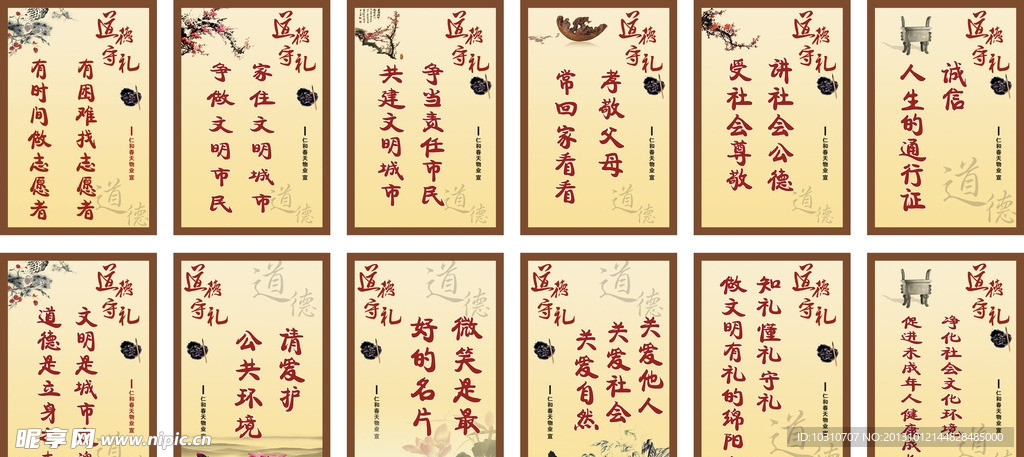 道德
守礼
有困难找志愿者
有时间做志愿者
仁和春天物业 宣
道德
守礼
家住文明城市
争做文明市民
仁和春天物业 宣
道德
道德
守礼
争当责任市民
共建文明城市
仁和春天物业 宣
道德
道德
守礼
孝敬父母
常回家看看
仁和春天物业 宣
道德
道德
守礼
讲社会公德
受社会尊敬
仁和春天物业 宣
道德
道德
守礼
诚信
人生的通行证
仁和春天物业 宣
道德
道德
守礼
文明是城市
道德是立身
仁和春天物业 宣
道德
道德
守礼
请爱护
公共环境
仁和春天物业 宣
道德
道德
守礼
微笑是最
好的名片
仁和春天物业 宣
道德
道德
守礼
关爱他人
关爱社会
关爱自然
仁和春天物业 宣
道德
守礼
知礼懂礼守礼
做文明有礼的绵阳
仁和春天物业 宣
道德
道德
守礼
净化社会文化环境
促进未成年人健康成
仁和春天物业 宣
昵享网 www.nipic.cn
ID:10310707 NO:20131012144828485000